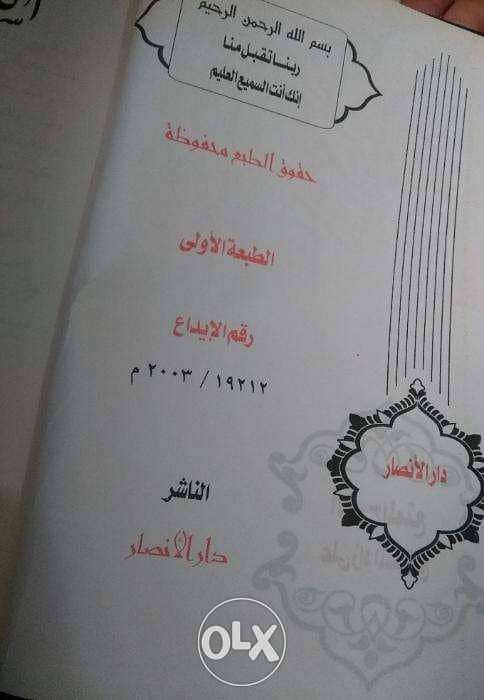 بسم الله الرحمن الرحيم
ربنا تقبل منا
إنك أنت السميع العليم
حقوق الطبع محفوظة
الطبعة الأولى
رقم الإيداع
١٩٢١٢ / ٢٠٠٣ م
دار الأنصار
الناشر
دار الأنصار
OLX